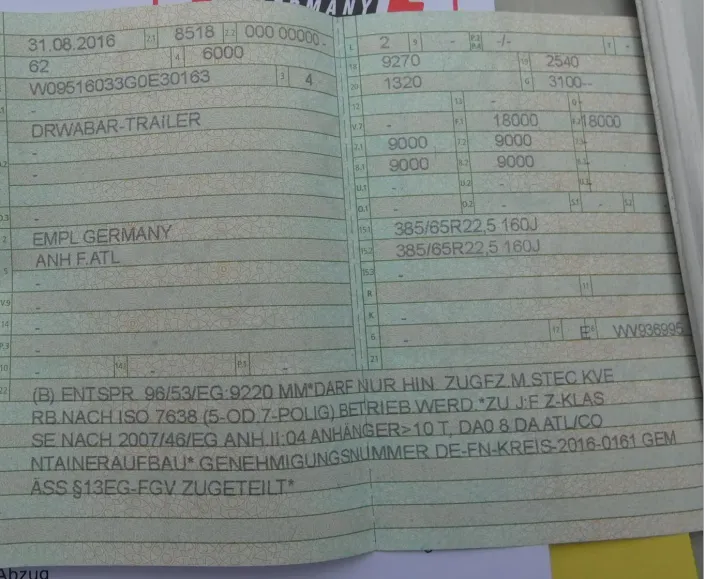 GERMANY
31.08.2016 2.1 8518 2.2 000 00000 -
62 4 6000
W09516033G0E30163 3 4
-
DRWABAR-TRAILER
-
-
-
-
D.3 -
2 EMPL GERMANY
5 ANH F.ATL
-
V.9 -
14 -
P.3 -
10 - 14.1 - P.5 -
L 2 9 - P.2 P.4 -/- T -
18 9270 19 2540
20 1320 G 3100--
12 - 13 - Q -
V.7 - F.1 18000 F.2 18000
7.1 9000 7.2 9000 7.3 -
8.1 9000 8.2 9000 8.3 -
U.1 - U.2 - U.3 -
O.1 - O.2 - S.1 - S.2 -
15.1 385/65R22,5 160J
15.2 385/65R22,5 160J
15.3 -
R - 11
K -
6 - 17 E 16 WV936995
21
22 (B) ENTSPR. 96/53/EG:9220 MM*DARF NUR HIN. ZUGFZ.M.STEC KVE
RB.NACH ISO 7638 (5-OD.7-POLIG) BETRIEB WERD.*ZU J:F.Z-KLAS
SE NACH 2007/46/EG ANH.II:04 ANHÄNGER>10 T, DA0.8 DA ATL/CO
NTAINERAUFBAU* GENEHMIGUNGSNUMMER DE-FN-KREIS-2016-0161 GEM
ÄSS §13EG-FGV ZUGETEILT*
Abzug